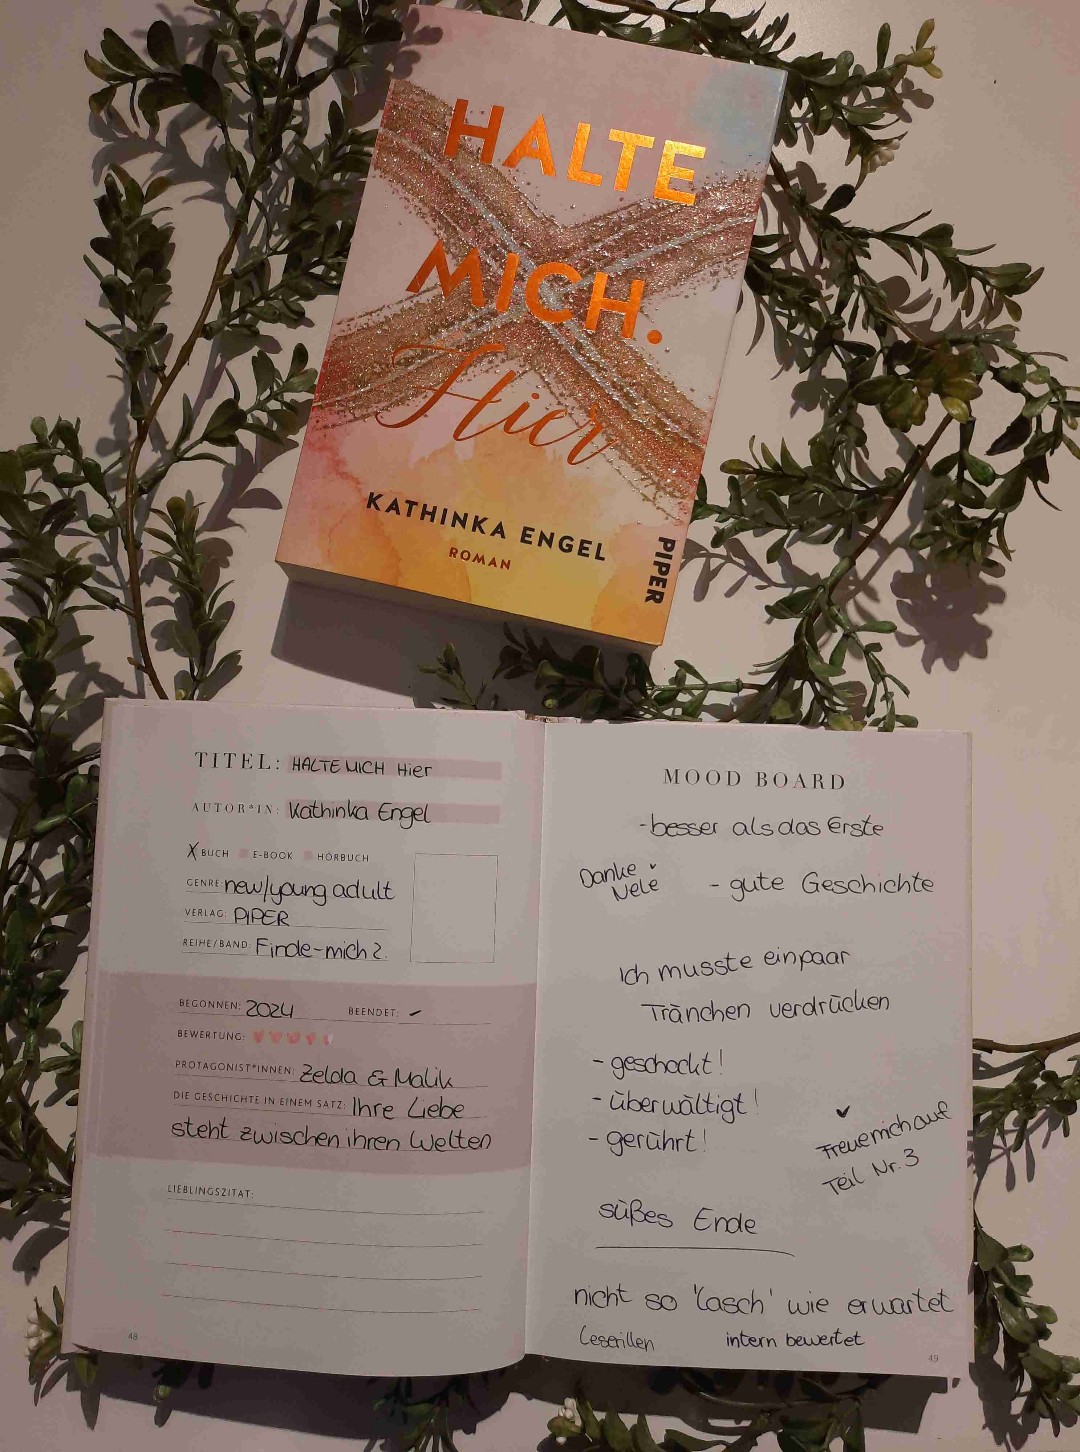 HALTE
MICH.
Hier
KATHINKA ENGEL
ROMAN
PIPER
TITEL: HALTE MICH Hier
AUTOR*IN: Kathinka Engel
X BUCH E-BOOK HÖRBUCH
GENRE: new/young adult
VERLAG: PIPER
REIHE/BAND: Finde-mich 2.
BEGONNEN: 2024 BEENDET: ✓
BEWERTUNG:
PROTAGONIST*INNEN: Zelda & Malik
DIE GESCHICHTE IN EINEM SATZ: Ihre Liebe
steht zwischen ihren Welten
LIEBLINGSZITAT:
48
MOOD BOARD
- besser als das Erste
Danke
Nele
- gute Geschichte
Ich musste ein paar
Tränchen verdrücken
- geschockt!
- überwältigt!
- gerührt!
Freue mich auf
Teil Nr. 3
süßes Ende
nicht so 'lasch' wie erwartet
Leserillen intern bewertet
49